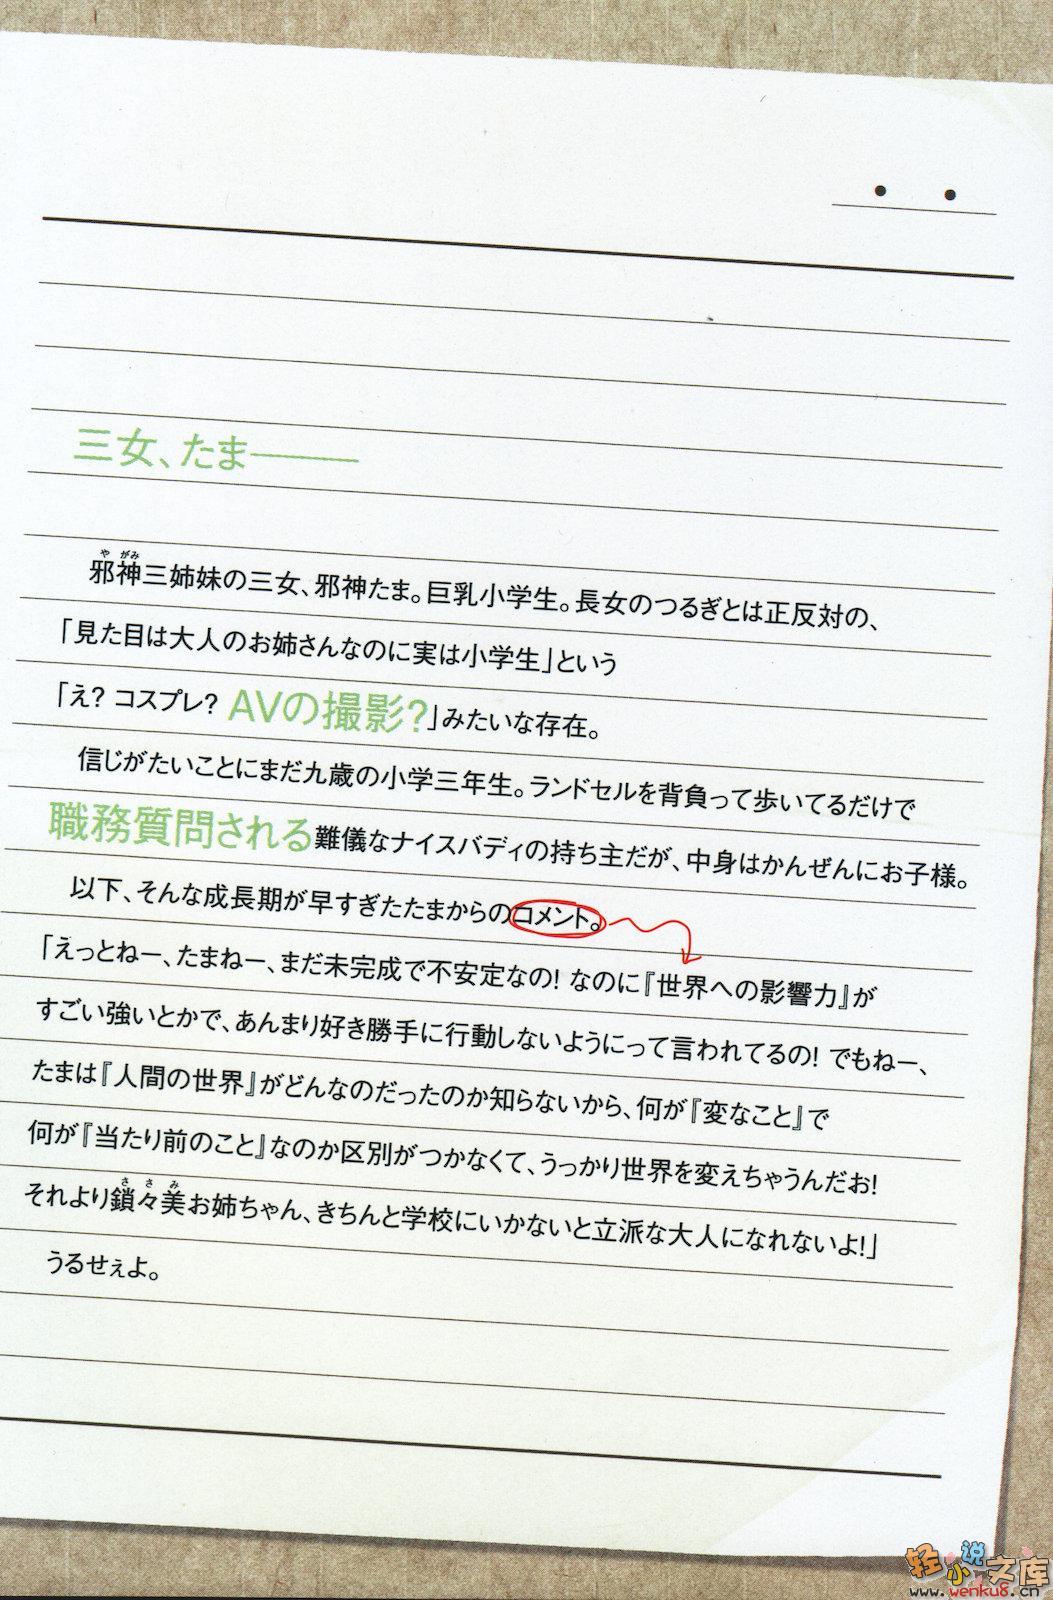 三女、たま――
邪神三姉妹の三女、邪神たま。巨乳小学生。長女のつるぎとは正反対の、
「見た目は大人のお姉さんなのに実は小学生」という
「え? コスプレ? AVの撮影?」みたいな存在。
信じがたいことにまだ九歳の小学三年生。ランドセルを背負って歩いてるだけで
職務質問される難儀なナイスバディの持ち主だが、中身はかんぜんにお子様。
以下、そんな成長期が早すぎたたまからのコメント。
「えっとねー、たまねー、まだ未完成で不安定なの! なのに『世界への影響力』が
すごい強いとかで、あんまり好き勝手に行動しないようにって言われてるの! でもねー、
たまは『人間の世界』がどんなのだったのか知らないから、何が『変なこと』で
何が『当たり前のこと』なのか区別がつかなくて、うっかり世界を変えちゃうんだお!
それより鎖々美お姉ちゃん、きちんと学校にいかないと立派な大人になれないよ!」
うるせぇよ。
轻小说文库
www.wenku8.cn